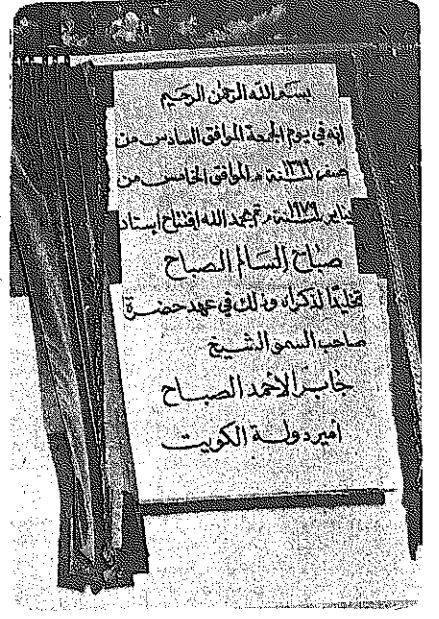 بسم الله الرحمن الرحيم
إنه في يوم الجمعة الموافق السادس من
صفر لسنة ١٣٩٩ هـ الموافق الخامس من
يناير لسنة ١٩٧٩ م تم بحمد الله افتتاح استاد
صباح السالم الصباح
تخليداً لذكراه وذلك في عهد حضرة
صاحب السمو الشيخ
جابر الأحمد الصباح
أمير دولة الكويت